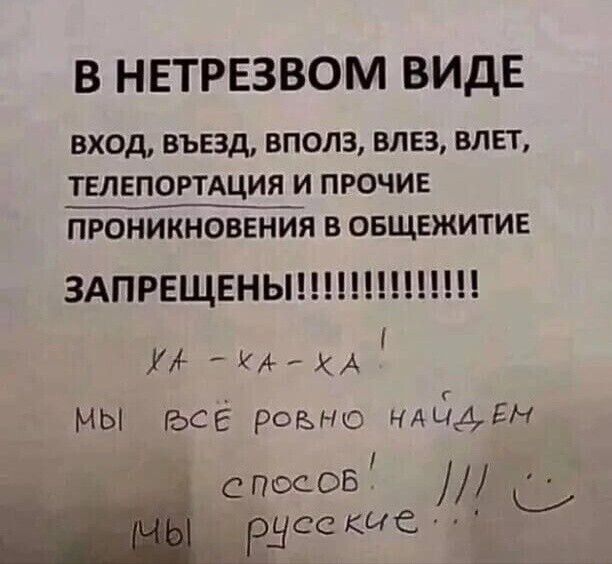 В НЕТРЕЗВОМ ВИДЕ
ВХОД, ВЪЕЗД, ВПОЛЗ, ВЛЕЗ, ВЛЕТ,
ТЕЛЕПОРТАЦИЯ И ПРОЧИЕ
ПРОНИКНОВЕНИЯ В ОБЩЕЖИТИЕ
ЗАПРЕЩЕНЫ!!!!!!!!!!!!!!!
ХА - ХА - ХА!
МЫ ВСЁ РОВНО НАЙДЕМ
СПОСОБ! !!!
МЫ РУССКИЕ...